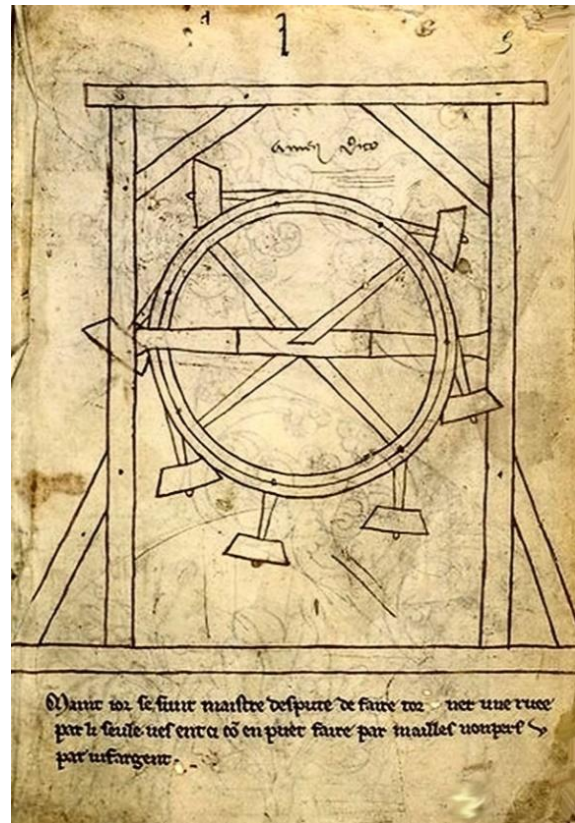 amen dico
Maint ior se sunt maistre despute de faire tor ner une ruee
par li seule ves ent ci cō en puet faire par mailles nonpers
par vif argent.